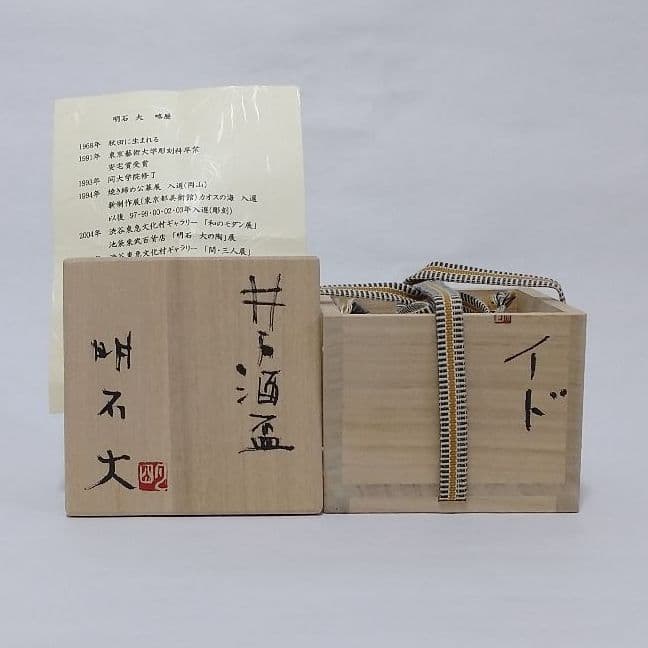 明石 大 略歴
1968年 秋田に生まれる
1991年 東京藝術大学彫刻科卒業
安宅賞受賞
1993年 同大学院修了
1994年 焼き締め公募展 入選(岡山)
新制作展(東京都美術館)カオスの海 入選
以後 97・99・00・02・03年入選(彫刻)
2004年 渋谷東急文化村ギャラリー 「和のモダン展」
池袋東武百貨店 「明石 大の陶」展
渋谷東急文化村ギャラリー 「間・三人展」
井戸酒盃
明石大
イド